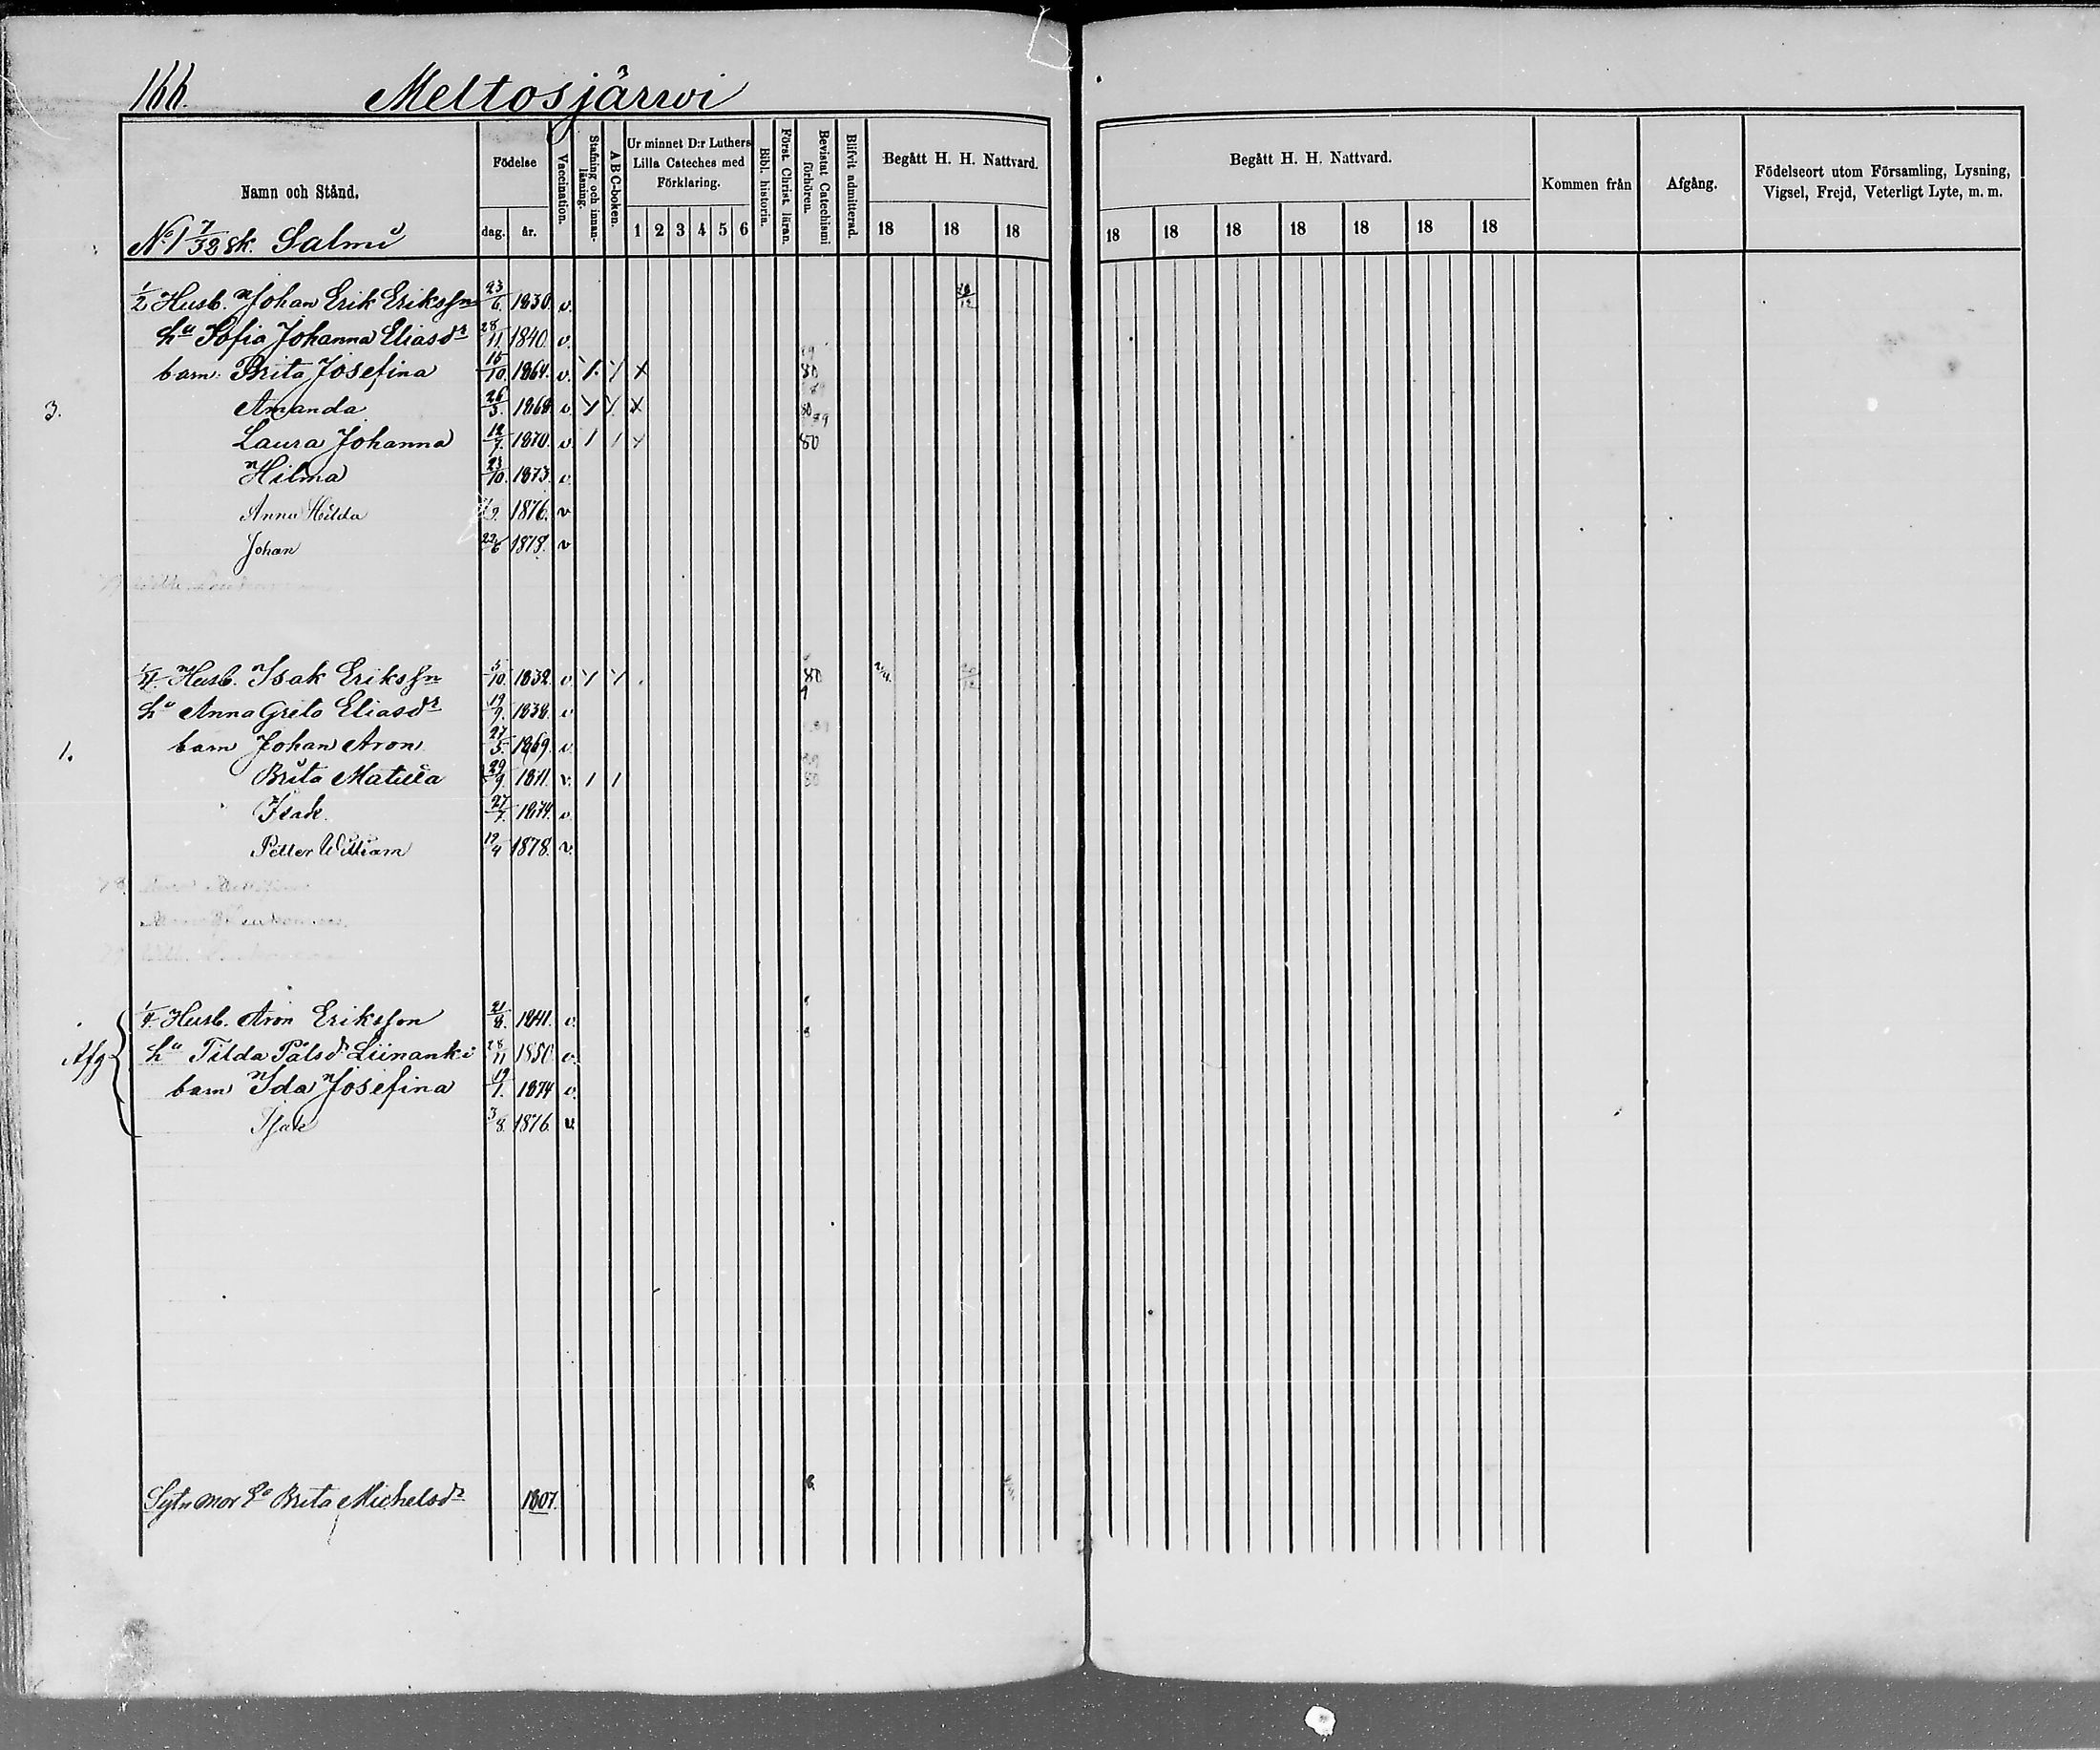 166.
Meltosjärwi
Namn och Stånd.
Födelse
dag. år.
Vaccination.
Stafning och innanläsning.
A B C-boken.
Ur minnet D:r Luthers Lilla Cateches med Förklaring.
1 2 3 4 5 6
Bibl. historia.
Först. Christ. läran.
Bevistat Catechismi förhören.
Blifvit admitterad.
Begått H. H. Nattvard.
18 18 18
Begått H. H. Nattvard.
18 18 18 18 18 18 18
Kommen från
Afgång.
Födelseort utom Församling, Lysning, Vigsel, Frejd, Veterligt Lyte, m. m.
No 1 7/32 sk. Salmi
1/2 Husb. Johan Erik Eriksson 23/6. 1830. v.
hu Sofia Johanna Eliasdr 28/11. 1840. v.
barn: Brita Josefina 15/10. 1864. v. 80
3. Amanda 26/3. 1868. v. 80
Laura Johanna 12/7. 1870. v 80
Hilma 23/10. 1873. v.
Anna Hilda 1876. v
Johan 22/6 1878. v
1/4 Husb. Isak Eriksson 5/10. 1832. v. 80
hu Anna Greta Eliasdr 19/9. 1838. v
1. barn Johan Aron 27/5. 1869. v.
Brita Matilda 29/9. 1871. v. 80
Isak. 27/7. 1874. v.
Petter William 19/4 1878. v.
Afg
1/4 Husb. Aron Eriksson 21/8. 1841. v.
hu Tilda Pålsdr Liinanki 28/11 1850 v.
barn Ida Josefina 19/1. 1874 v.
Isak 3/8. 1876. v.
Sytn mor Brita Michelsdr 1807.